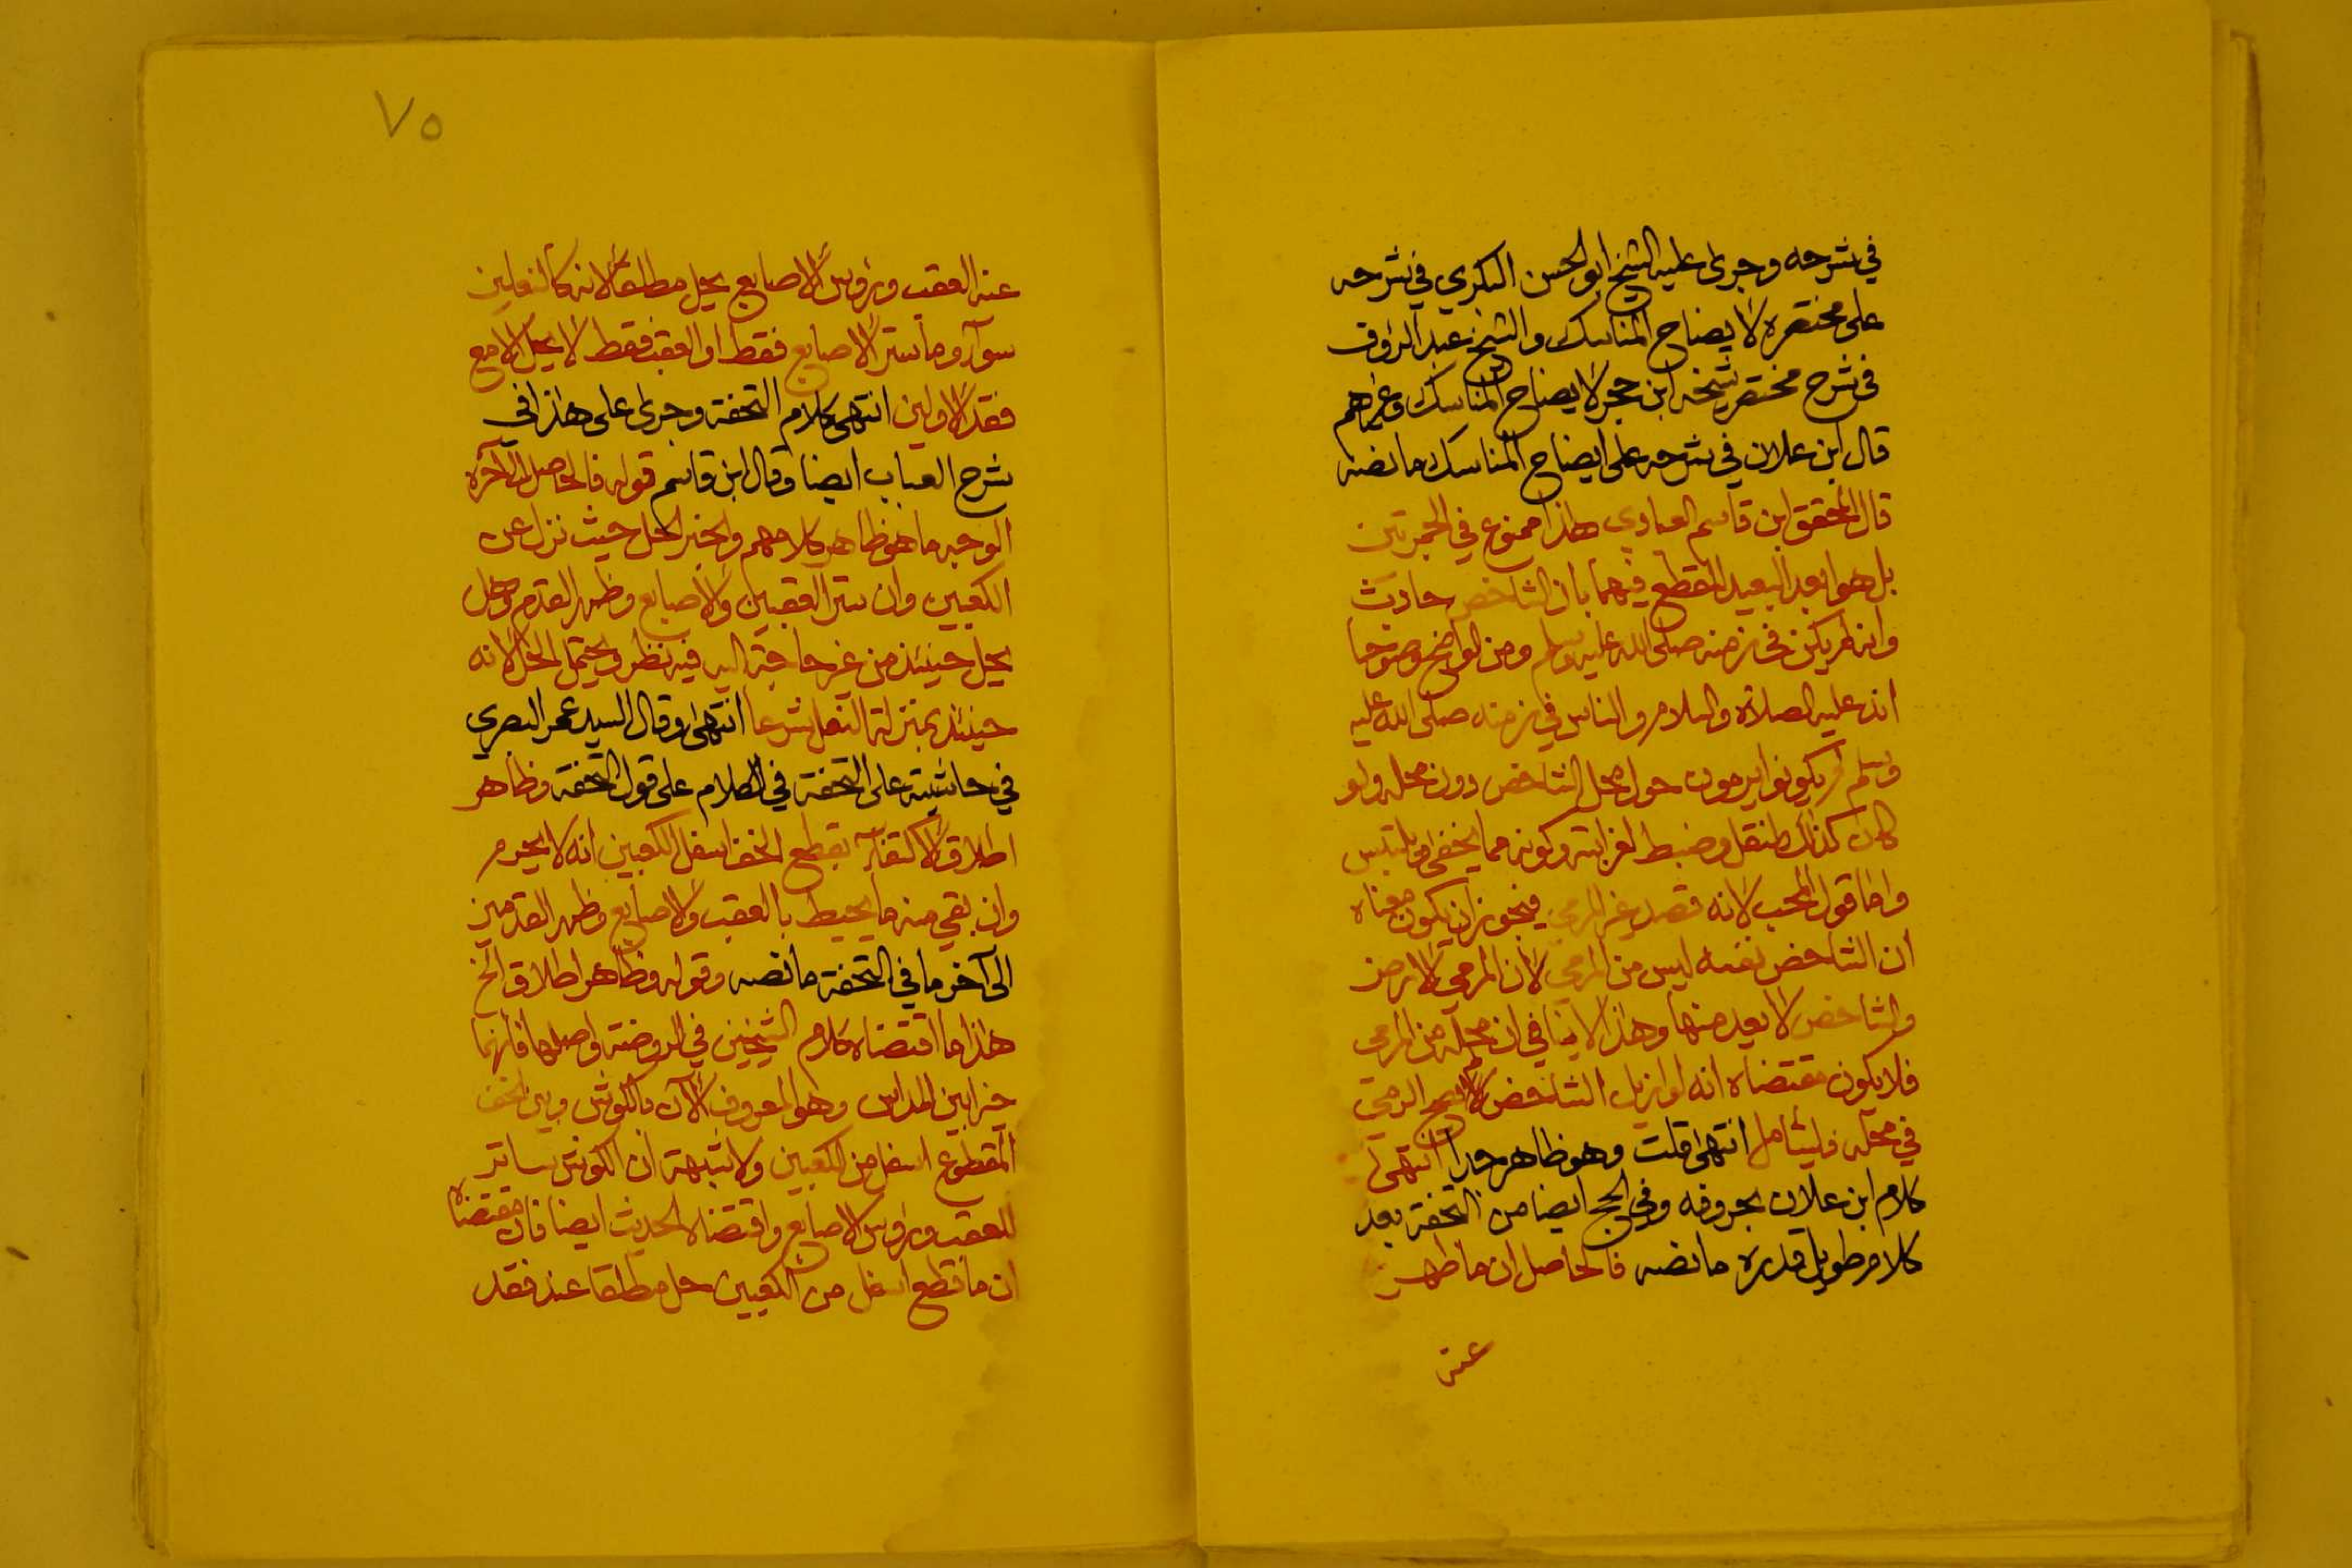 في شرحه وجرى عليه الشيخ ابو الحسن البكري في شرحه
على مختصره لايضاح المناسك والشيخ عبد الرؤف
في شرح مختصر شيخه ابن حجر لايضاح المناسك وغيرهم
قال ابن علان في شرحه على ايضاح المناسك ما نصه
قال المحقق ابن قاسم العبادي هذا ممنوع في الجمرتين
بل هو ابعد البعيد للقطع فيهما بان الشاخص حادث
وانه لم يكن في زمنه صلى الله عليه وسلم ومن الواضح وضوحا
انه عليه الصلاة والسلام والناس في زمنه صلى الله عليه
وسلم لم يكونوا يرمون حول محل الشاخص دون محله ولو
كان كذلك لنقل وضبط لغرابته وكونه مما يخفى ويلتبس
واما قول المحب لانه قصد غير المرمى فيجوز ان يكون معناه
ان الشاخص نفسه ليس من المرمى لان المرمى الارض
والشاخص لا يعد منها وهذا لا ينافي ان محله من المرمى
فلا يكون مقتضاه انه لو ازيل الشاخص لا يصح الرمي
في محله فليتامل انتهى قلت وهو ظاهر جدا انتهى
كلام ابن علان بحروفه وفي الحج ايضا من التحفة بعد
كلام طويل قدره ما نصه فالحاصل ان ما ظهر
عنه
٧٥
عنه العقب ورؤس الاصابع يحل مطلقا لانه كالنعلين
سواء وما ستر الاصابع فقط او العقب فقط لا يحل الا مع
فقد الاولين انتهى كلام التحفة وجرى على هذا في
شرح العباب ايضا وقال ابن قاسم قوله فالحاصل الى آخره
الوجه ما هو ظاهر كلامهم والخبر الحل حيث نزل عن
الكعبين وان ستر العقبين والاصابع وظهر القدم وهل
يحل حينئذ من غير حاجة اليه فيه نظر ويحتمل الحل لانه
حينئذ بمنزلة النعل شرعا انتهى وقال السيد عمر البصري
في حاشيته على التحفة في الكلام على قول التحفة وظاهر
اطلاق الاكتفاء بقطع الخف اسفل الكعبين انه لا يحرم
وان بقي منه ما يحيط بالعقب والاصابع وظهر القدمين
الى آخر ما في التحفة ما نصه وقوله وظاهر اطلاق الخ
هذا ما اقتضاه كلام الشيخين في الروضة واصلها فانهما
خيرا بين المداس وهو المعروف الآن بالكوش وبين الخف
المقطوع اسفل من الكعبين ولا شبهة ان الكوش ساتر
للعقب ورؤس الاصابع واقتضاه الحديث ايضا فان مقتضاه
ان ما قطع اسفل من الكعبين حل مطلقا عند فقد